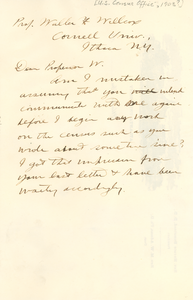 [U.S. Census Office, 1902?]
Prof. Walter F. Willcox
Cornell Univ.,
Ithaca N.Y.
Dear Professor W.
Am I mistaken in
assuming that you intend
communicate with me again
before I begin any work
on the census such as you
wrote about some time since?
I got this impression from
your last letter & have been
waiting accordingly.